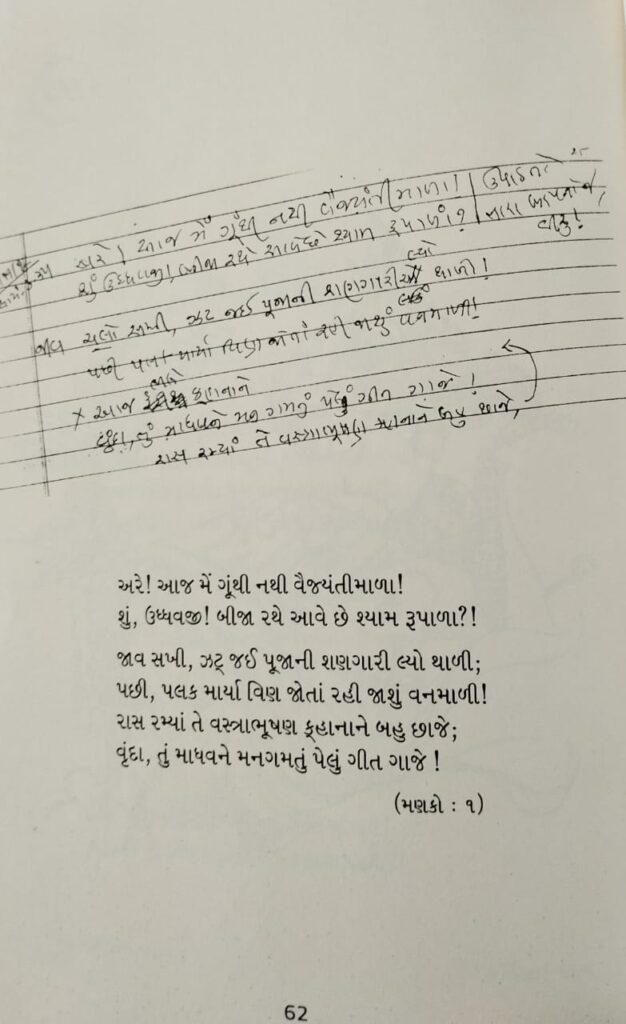 અરે! આજ મેં ગૂંથી નથી વૈજયંતીમાળા!
શું ઉધ્ધવજી! બીજા રથે આવે છે શ્યામ રૂપાળા?
ચલો સખી, ઝટ જઈ પૂજાની શણગારી લ્યો થાળી!
પછી પલક માર્યા વિણ જોતાં રહી જાશું વનમાળી!
× આજ
વૃંદા, તું માધવને મન ગમતું પેલું ગીત ગાજે!
રાસ રમ્યાં તે વસ્ત્રાભૂષણ બહુ છાજે,
અરે! આજ મેં ગૂંથી નથી વૈજયંતીમાળા!
શું, ઉધ્ધવજી! બીજા રથે આવે છે શ્યામ રૂપાળા?!
જાવ સખી, ઝટ્ જઈ પૂજાની શણગારી લ્યો થાળી;
પછી, પલક માર્યા વિણ જોતાં રહી જાશું વનમાળી!
રાસ રમ્યાં તે વસ્ત્રાભૂષણ ક્હાનાને બહુ છાજે;
વૃંદા, તું માધવને મનગમતું પેલું ગીત ગાજે !
(મણકો : ૧)
62